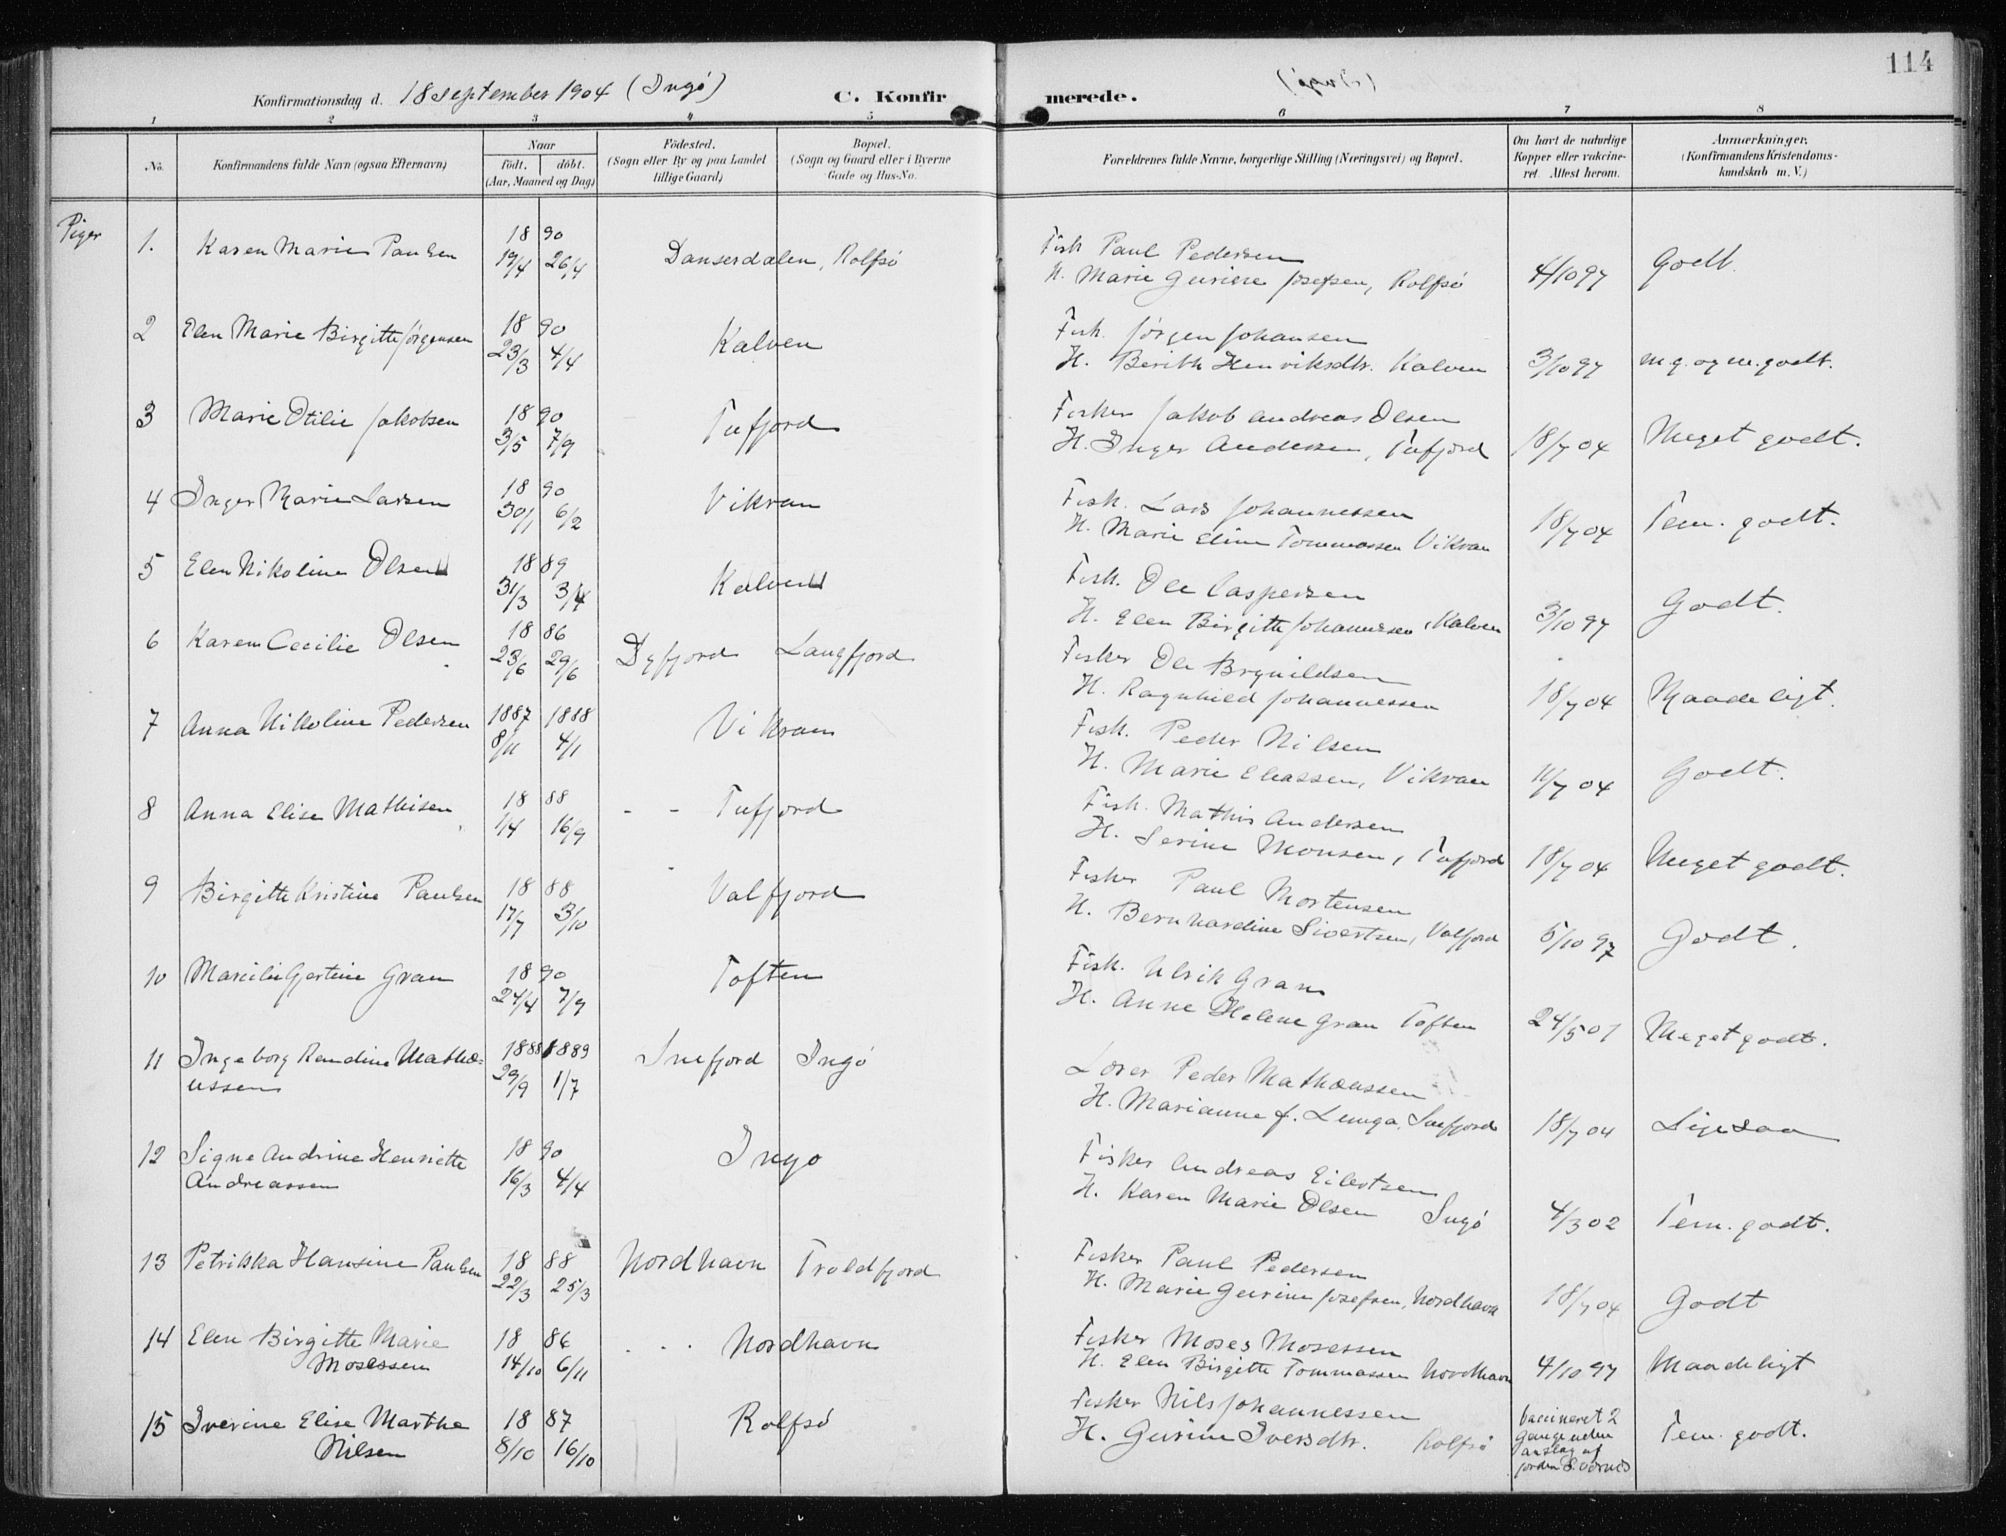 114
Konfirmationsdag d. 18 September 1904 (Ingø)
C. Konfirmerede.
1 2 3 4 5 6 7 8
No. Konfirmandens fulde Navn (ogsaa Efternavn) Naar født. døbt. (Aar, Maaned og Dag) Fødested. (Sogn eller By og paa Landet tillige Gaard) Bopæl. (Sogn og Gaard eller i Byerne Gade og Hus-No. Forældrenes fulde Navne, borgerlige Stilling (Næringsvei) og Bopæl. Om havt de naturlige Kopper eller vakcineret. Attest herom. Anmærkninger. (Konfirmandens Kristendomskundskab m. V.)
Piger
1. Karen Marie Paulsen 18 90 Danserdalen, Rolfsø Fisk Paul Pedersen
19/4 26/4 H. Marie Gurine Josefsen, Rolfsø 4/10 97 Godt.
2 Elen Marie Birgitte Jørgensen 18 90 Kalven Fisk. Jørgen Johansen
23/3 4/4 H. Berith Henriksdtr. Kalven 3/10 97 m.g. og m. godt.
3 Marie Otilie Jakobsen 18 90 Tufjord Fisker Jakob Andreas Olsen
3/5 7/9 H. Inger Andersen, Tufjord 18/7 04 Meget godt.
4 Inger Marie Larsen 18 90 Vikran Fisk. Lars Johannessen
30/1 6/2 H. Marie Eline Tommassen Vikran 18/7 04 Tem. godt.
5 Elen Nikoline Olsen 18 89 Kalven Fisk. Ole Caspersen
31/3 3/4 H. Elen Birgitte Johannesen, Kalven 3/10 97 Godt.
6 Karen Cecilie Olsen 18 86 Dyfjord Langfjord Fisker Ole Brynildsen
23/6 29/6 H. Ragnhild Johannessen 18/7 04 Maadeligt.
7 Anna Nikoline Pedersen 1887 1888 Vikran Fisk. Peder Nilsen
8/11 4/1 H. Marie Eliassen, Vikran 11/7 04 Godt.
8 Anna Elise Mathisen 18 88 - - Tufjord Fisk. Mathis Andersen
1/4 16/9 H. Serine Monsen, Tufjord 18/7 04 Meget godt.
9 Birgitte Kristine Paulsen 18 88 Valfjord Fisker Paul Mortensen
17/7 3/10 H. Bernhardine Sivertsen, Valfjord 5/10 97 Godt.
10 Gjertine Gran 18 90 Toften Fisk. Ulrik Gran
24/4 7/9 H. Anne Helene Gran Toften 24/5 01 Meget godt.
11 Ingeborg Randine Mathæ- 1888 1889 Snefjord Ingø Peder Mathæussen
ussen 29/9 1/7 H. Marianne f. Snefjord 18/7 04 Ligesaa
12 Signe Andrine Henriette 18 90 Ingø Fisker Andreas Eilertsen
Andreassen 16/3 4/4 H. Karen Marie Olsen Ingø 4/3 02 Tem. godt.
13 Petrikka Hansine Paulsen 18 88 Nordhavn Troldfjord Fisker Paul Pedersen
22/3 25/3 H. Marie Gurine Josefsen, Nordhavn 18/7 04 Godt
14 Elen Birgitte Marie 18 86 . . . Nordhavn Fisker Moses Mosessen
Mosessen 14/10 6/11 H. Elen Birgitte Tommassen Nordhavn 4/10 97 Maadeligt
15 Iverine Elise Marthe 18 87 Rolfsø Fisker Nils Johannessen
Nilsen 8/10 16/10 H. Gurine Iversdtr. Rolfsø vaccineret 2 Gange uden anslag af Tem. godt.